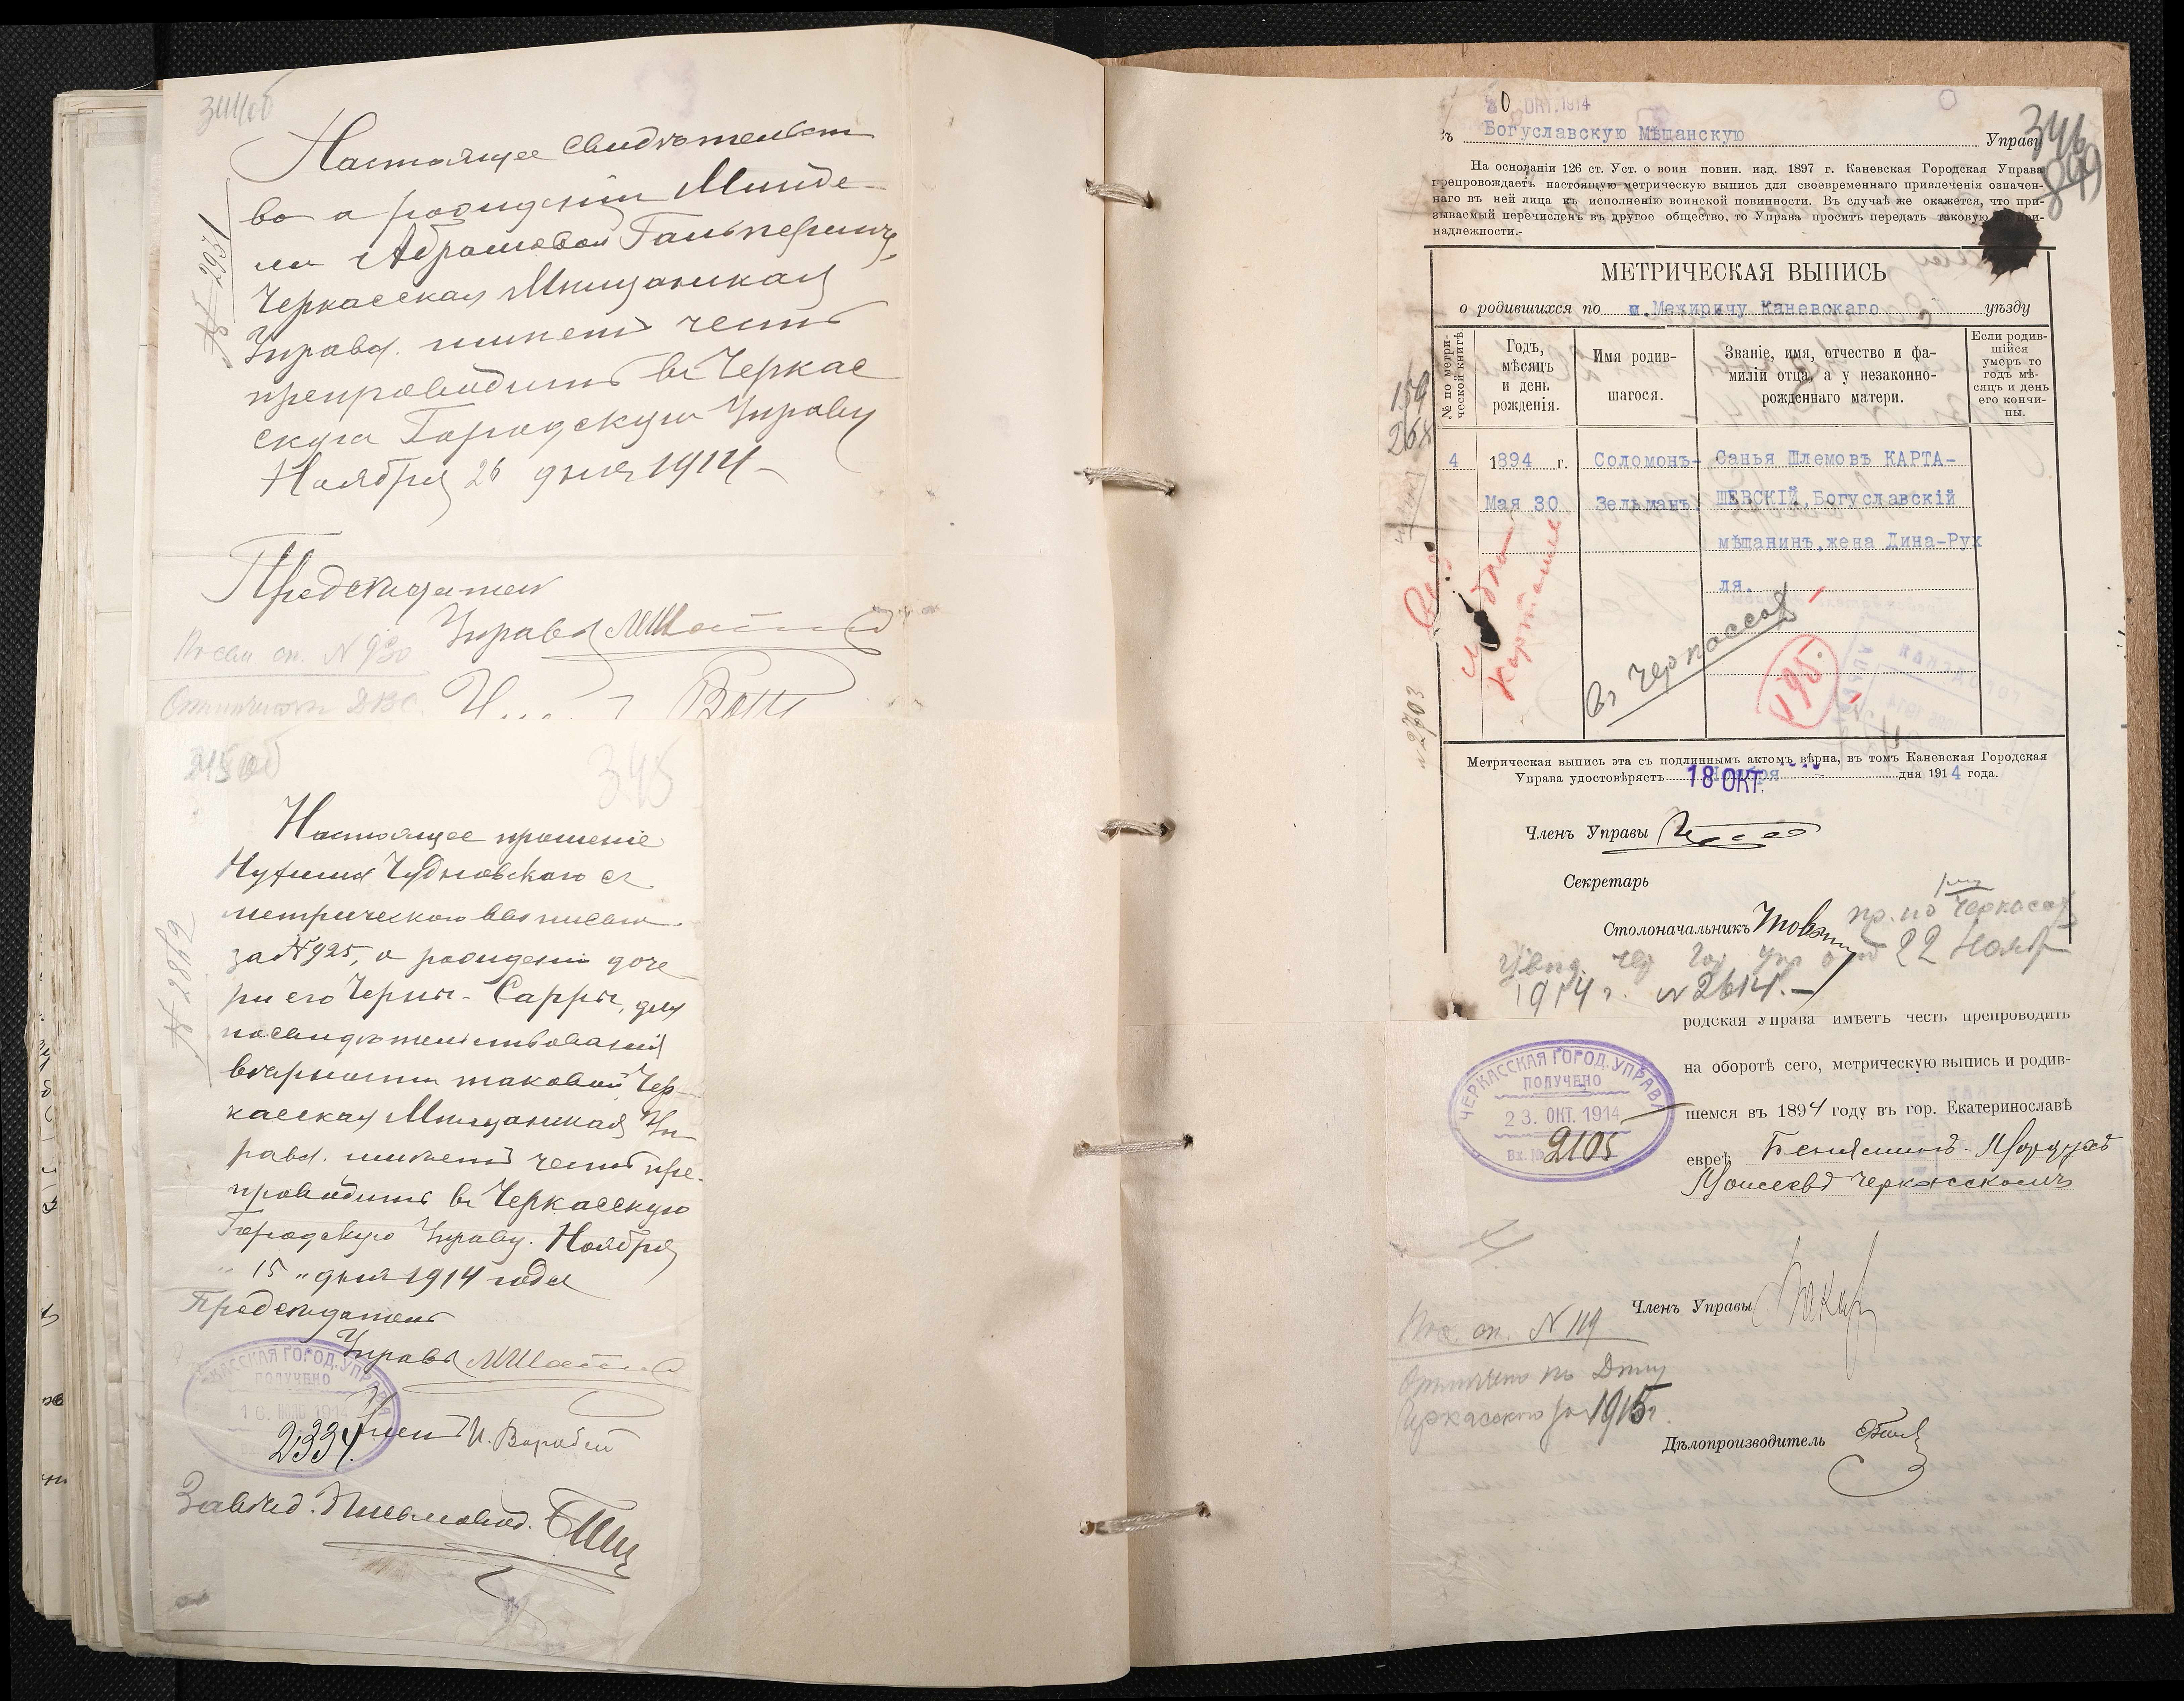 Настоящее свидѣтельст
во о рожденіи Минде-
ли Абрамовой Гальпериной,
Черкасская Мѣщанская
Управа имѣетъ честь
препроводить въ Черкас
скую Городскую Управу
Ноября 26 дня 1914
№ 2931
Предсѣдатель
Управы
Посем. сп. № 930
345
Настоящее прошеніе
Чудновскаго съ
метрическою выписью
за № 925, о рожденіи доче
ри его Черны-Сарры, для
посвидѣтельствованія
вѣрности таковой, Чер
касская Мѣщанская Уп
рава имѣетъ честь пре-
проводить въ Черкасскую
Городскую Управу. Ноября
"15" дня 1914 года
Предсѣдатель
Управы
ЧЕРКАССКАЯ ГОРОД. УПРАВА
ПОЛУЧЕНО
16. НОЯБ 1914
2334.
Членъ
Завѣд. Письмовод.
0 ОКТ. 1914
346
849
Въ Богуславскую Мѣщанскую Управу
На основаніи 126 ст. Уст. о воин повин. изд. 1897 г. Каневская Городская Управа
препровождаетъ настоящую метрическую выпись для своевременнаго привлеченія означен-
наго въ ней лица къ исполненію воинской повинности. Въ случаѣ же окажется, что при-
зываемый перечисленъ въ другое общество, то Управа проситъ передать таковую по при-
надлежности.-
МЕТРИЧЕСКАЯ ВЫПИСЬ
о родившихся по м. Межиричу Каневскаго уѣзду
№ по метри-
ческой книгѣ
Годъ,
мѣсяцъ
и день
рожденія.
Имя родив-
шагося.
Званіе, имя, отчество и фа-
миліи отца, а у незаконно-
рожденнаго матери.
Если родив-
шійся
умеръ то
годъ мѣ-
сяцъ и день
его кончи-
ны.
4 1894 г. Соломонъ- Санья Шлемовъ КАРТА-
Мая 30 Зельманъ. ШЕВСКІЙ, Богуславскій
мѣщанинъ, жена Дина-Рух
ля.
въ Черкассах
195.
№ 2703
Метрическая выпись эта съ подлиннымъ актомъ вѣрна, въ томъ Каневская Городская
Управа удостовѣряетъ 18 ОКТ. дня 1914 года.
Членъ Управы
Секретарь
Столоначальникъ
пр. по Черкассах
22 Нояб
1914 г. № 2614.-
родская Управа имѣетъ честь препроводить
на оборотѣ сего, метрическую выпись и родив-
шемся въ 1894 году въ гор. Екатеринославѣ
евреѣ Беньяминъ-Мордухъ
Моисеевъ Черкасскомъ
ЧЕРКАССКАЯ ГОРОД. УПРАВА
ПОЛУЧЕНО
23. ОКТ. 1914
Вх. № 2105
Членъ Управы
Пос. сп. № 119
Отмѣчено по
Черкасского за 1915 г.
Дѣлопроизводитель